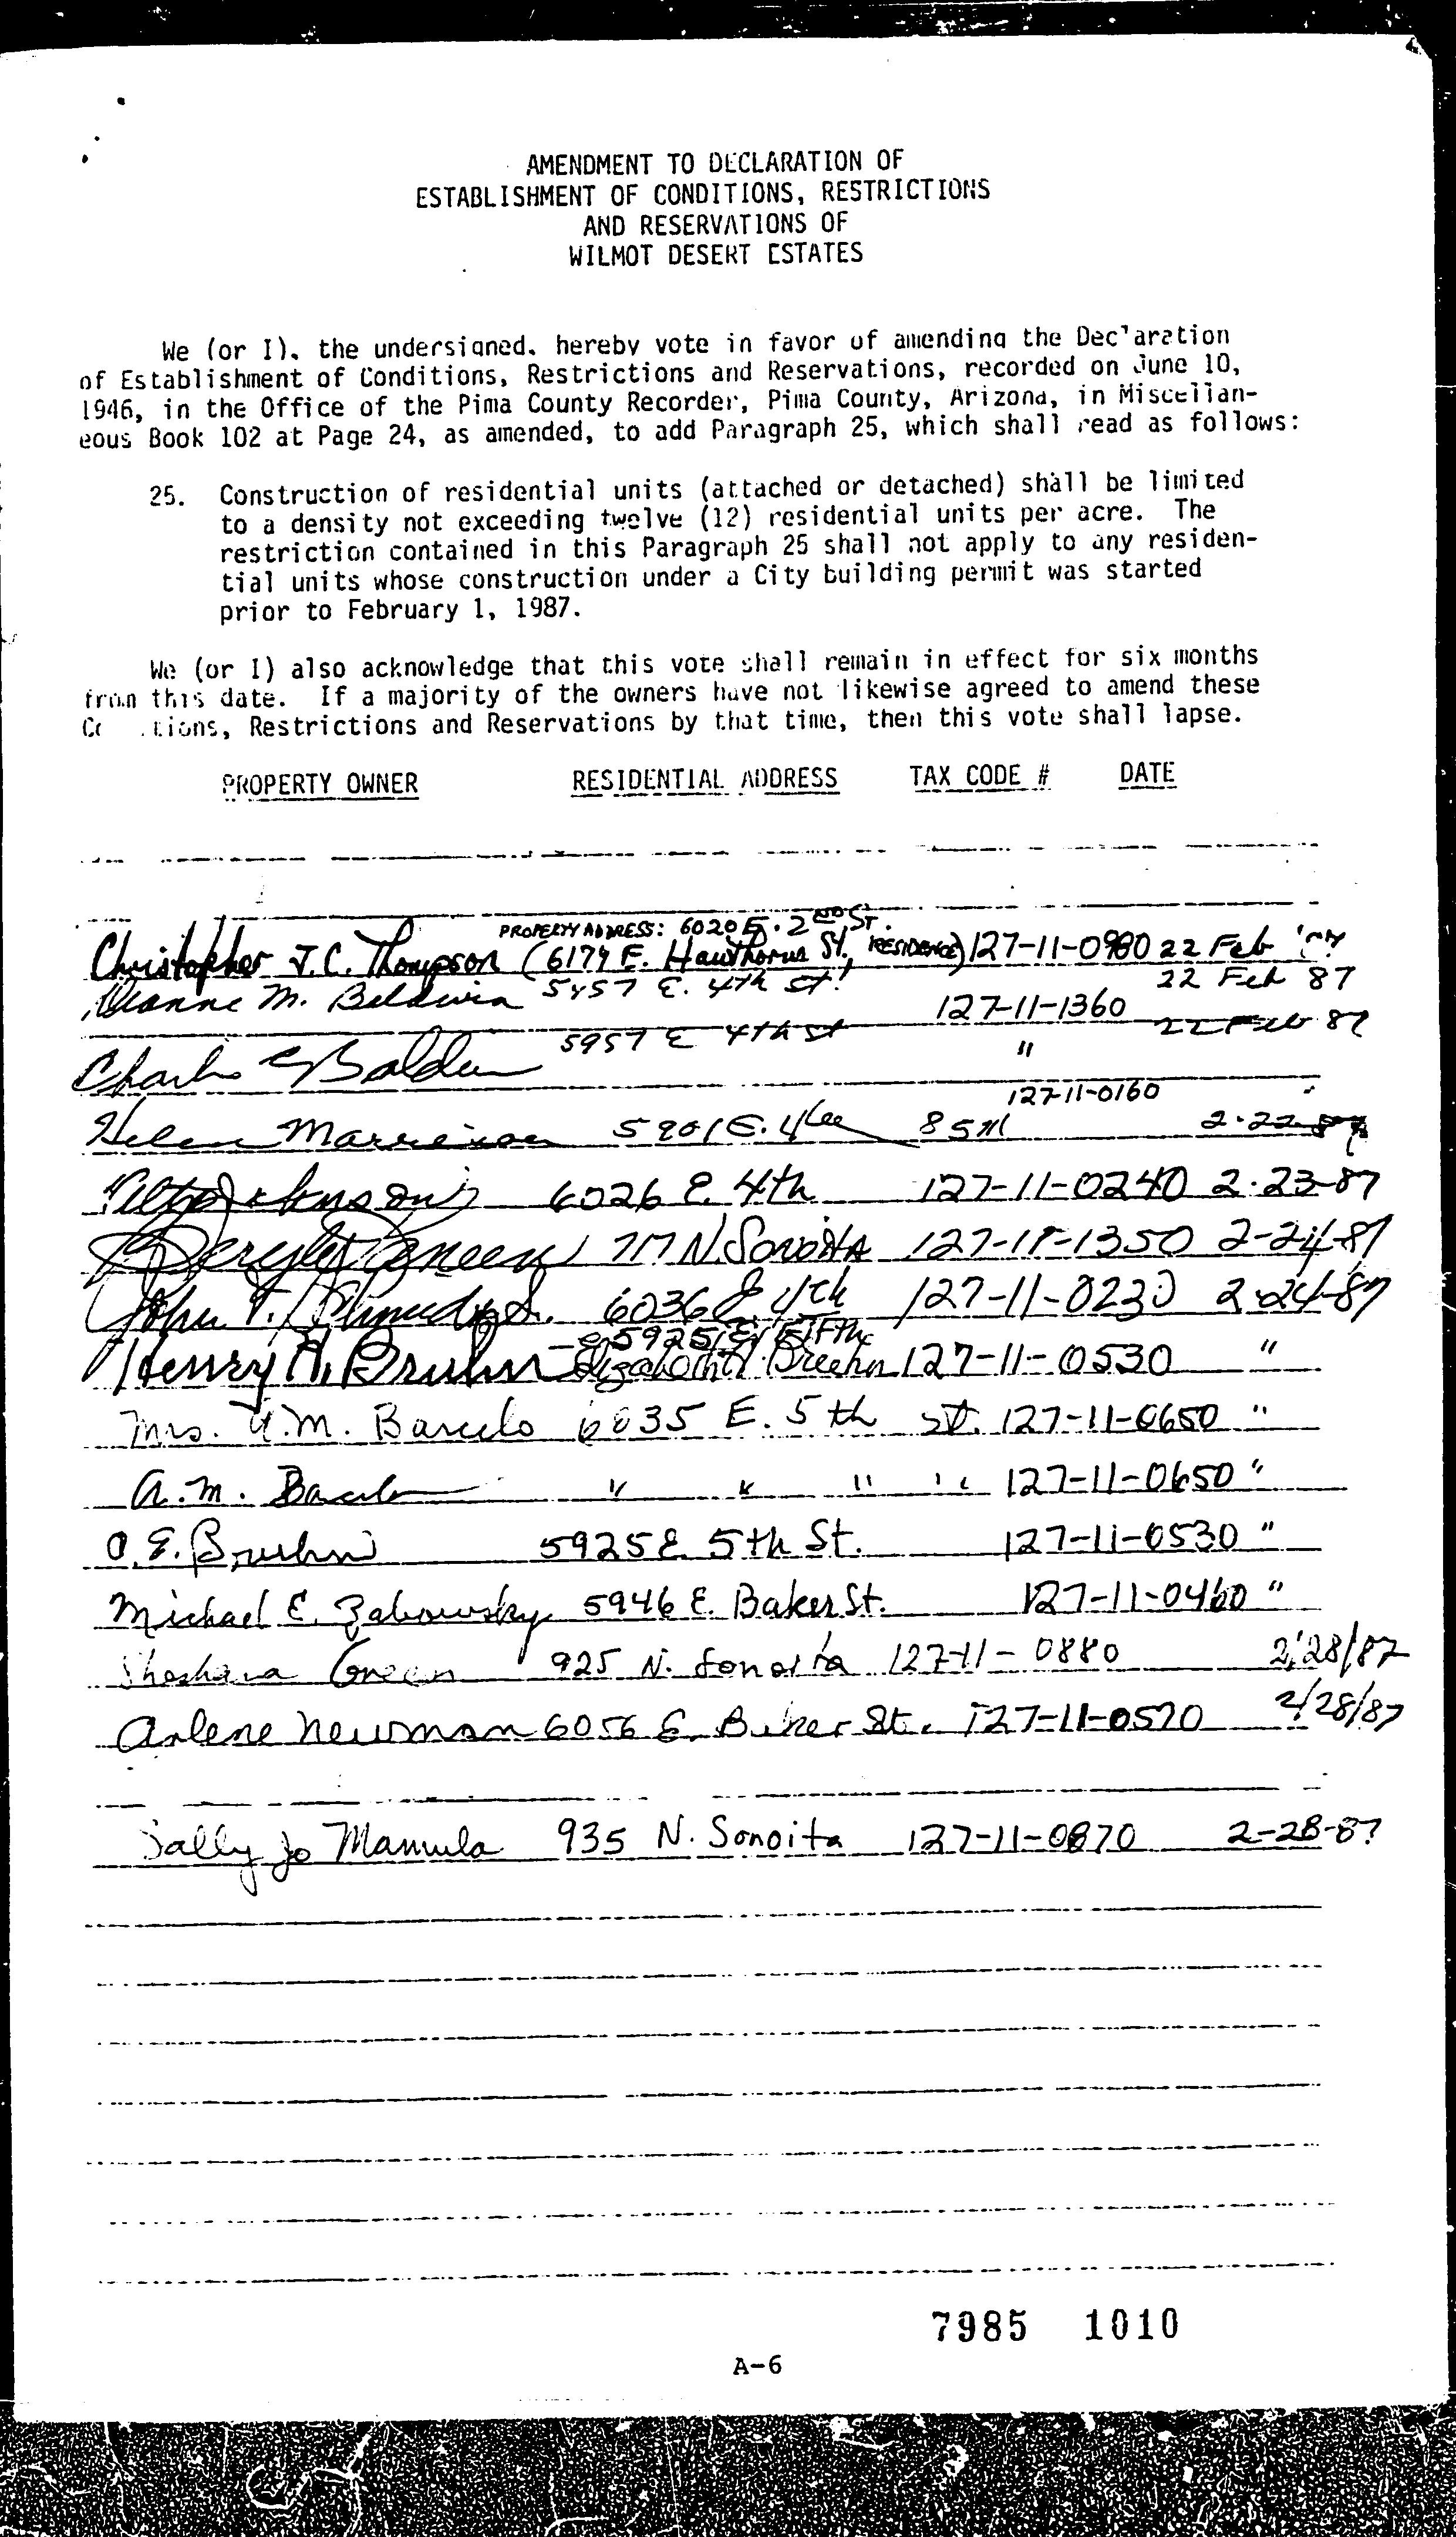 AMENDMENT TO DECLARATION OF
ESTABLISHMENT OF CONDITIONS, RESTRICTIONS
AND RESERVATIONS OF
WILMOT DESERT ESTATES
We (or I), the undersigned, hereby vote in favor of amending the Declaration
of Establishment of Conditions, Restrictions and Reservations, recorded on June 10,
1946, in the Office of the Pima County Recorder, Pima County, Arizona, in Miscellan-
eous Book 102 at Page 24, as amended, to add Paragraph 25, which shall read as follows:
25. Construction of residential units (attached or detached) shall be limited
to a density not exceeding twelve (12) residential units per acre. The
restriction contained in this Paragraph 25 shall not apply to any residen-
tial units whose construction under a City building permit was started
prior to February 1, 1987.
We (or I) also acknowledge that this vote shall remain in effect for six months
from this date. If a majority of the owners have not likewise agreed to amend these
tions, Restrictions and Reservations by that time, then this vote shall lapse.
PROPERTY OWNER RESIDENTIAL ADDRESS TAX CODE # DATE
PROPERTY ADDRESS: 6020 E. 2ND ST.
Christopher J.C. Thompson (6174 E. Hawthorne St., RESIDENCE) 127-11-0980 22 Feb
Dianne M. Baldwin 5957 E. 4th St. 127-11-1360 22 Feb 87
Charles 5957 E 4th St " 22 Feb 87
127-11-0160
Helen 5901 E. 4th 85711 2-22-87
6026 E. 4th 127-11-0240 2-23-87
717 N Sonoita 127-11-1350 2-24-87
John T. 6036 E. 4th 127-11-0230 2-24-87
5925 E. FIFTH
Henry A. Bruhn Elizabeth Bruhn 127-11-0530 "
Mrs. A.M. Barcelo 6035 E. 5th St. 127-11-0650 "
A.M. Barcelo " " " " 127-11-0650 "
O.E. Bruhn 5925 E. 5th St. 127-11-0530 "
Michael E. Zabowsky 5946 E. Baker St. 127-11-0460 "
Shoshana Green 925 N. Sonoita 127-11-0880 2/28/87
Arlene Newman 6056 E. Baker St. 127-11-0570 2/28/87
Sally Jo Mamula 935 N. Sonoita 127-11-0870 2-28-87
7985 1010
A-6